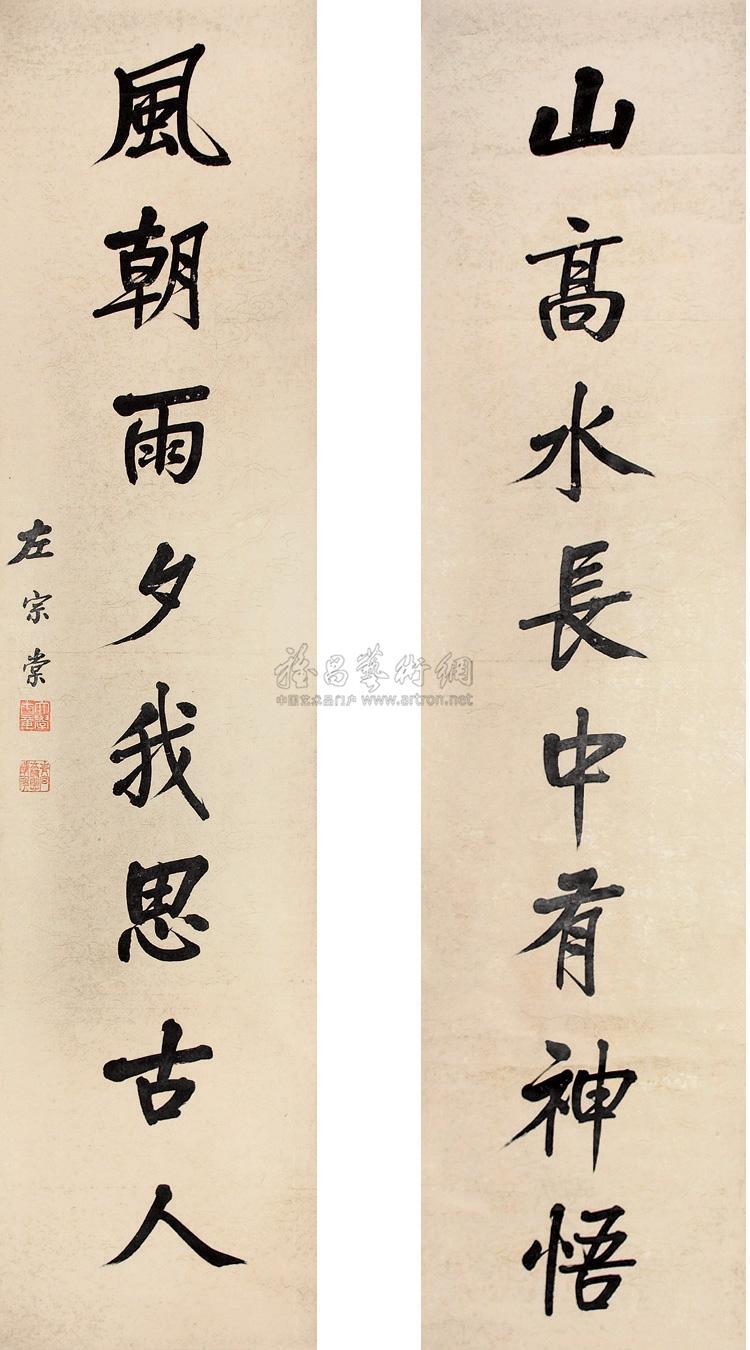 山高水長中有神悟
風朝雨夕我思古人
左宗棠
雅昌藝術網
中国艺术品门户 www.artron.net